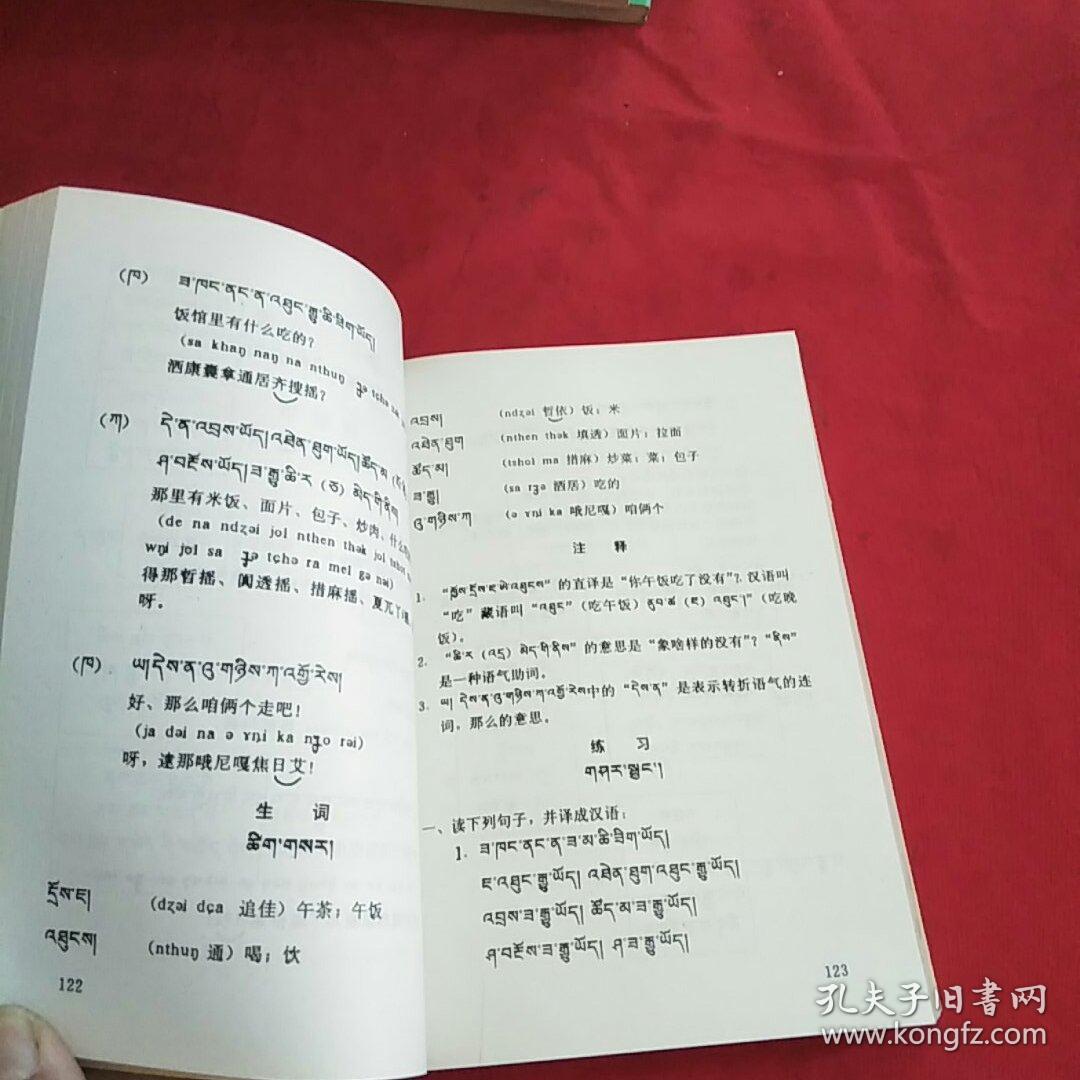 (ཁ) ཟ་ཁང་ནང་ན་འཐུང་རྒྱུ་ཆི་ཟིག་ཡོད།
饭馆里有什么吃的?
(sa khaŋ naŋ na nthuŋ
洒康囊拿通居齐搜摇?
(ཀ) དེ་ན་འབྲས་ཡོད།འཐེན་ཐུག་ཡོད།ཚོད་མ་
ཤ་བརྔོས་ཡོད།ཟ་རྒྱུ་ཆི་ར་(ཅ)མེད་གི་ནིས།
那里有米饭、面片、包子、炒肉、什么
(de na ndʐəi jol nthen thək jol tshot
wŋi jol sa ʒə tɕhə ra mel gə nəi)
得那哲摇、阗透摇、措麻摇、夏兀丫
呀。
(ཁ) ཡ།དེས་ན་འུ་གཉིས་ཀ་འགྲོ་རེས།
好、那么咱俩个走吧!
(ja dəi na ə ɤȵi ka nʒo rəi)
呀,逮那哦尼嘎焦日艾!
生 词
ཚིག་གསར།
དྲོས་ཇ། (dʐəi dɕa 追佳) 午茶;午饭
འཐུངས། (nthuŋ 通) 喝;饮
122
འབྲས། (ndʐəi 哲依) 饭;米
འཐེན་ཐུག (nthen thək 填透) 面片;拉面
ཚོད་མ། (tshol ma 措麻) 炒菜;菜;包子
ཟ་རྒྱུ། (sa rʒə 洒居) 吃的
འུ་གཉིས་ཀ (ə ɤni ka 哦尼嘎) 咱俩个
注 释
1. 的直译是“你午饭吃了没有”?汉语叫
“吃”藏语叫“འཐུང”(吃午饭) (吃晚
饭)。
2. “ཆི་ར(འདྲ)མེད་གི་ནིས”的意思是“象啥样的没有”?“ནིས”
是一种语气助词。
3. ཡ། དེས་ན་འུ་གཉིས་ཀ་འགྲོ་རེས中的“དེས་ན”是表示转折语气的连
词。那么的意思。
练 习
གཤར་སྦྱང་།
一、读下列句子,并译成汉语:
1. ཟ་ཁང་ནང་ན་ཟ་མ་ཆི་ཟིག་ཡོད།
ཇ་འཐུང་རྒྱུ་ཡོད། འཐེན་ཐུག་འཐུང་རྒྱུ་ཡོད།
འབྲས་ཟ་རྒྱུ་ཡོད། ཚོད་མ་ཟ་རྒྱུ་ཡོད།
ཤ་བརྔོས་ཟ་རྒྱུ་ཡོད། ཤ་ཟ་རྒྱུ་ཡོད།
123
孔夫子旧书网
www.kongfz.com